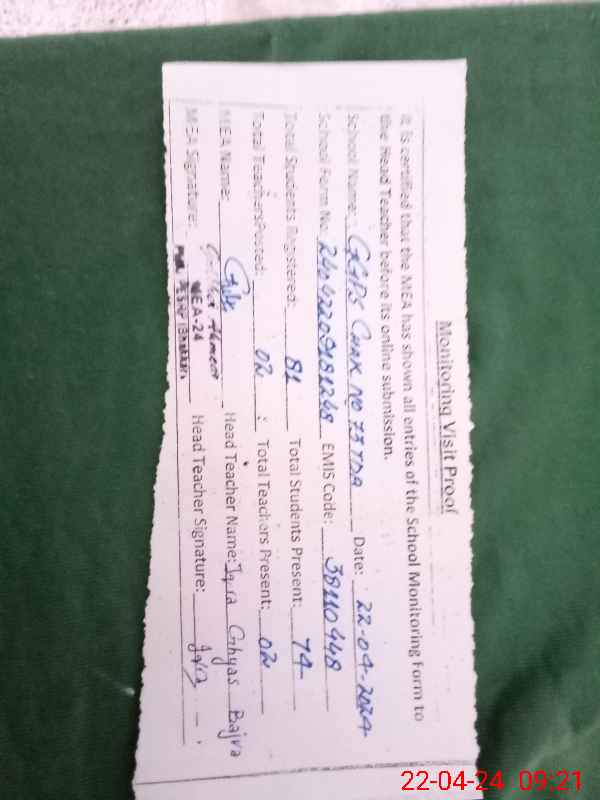 Monitoring Visit Proof
It is certified that the MEA has shown all entries of the School Monitoring Form to
the Head Teacher before its online submission.
School Name: GGPS CHAK NO 73 TDA Date: 22-04-2024
School Form No. 24042209181248 EMIS Code: 38110448
Total Students Registered: 81 Total Students Present: 74
Total Teachers Posted: 02 Total Teachers Present: 02
MEA Name: Head Teacher Name: Iqra Ghyas Bajva
MEA Signature: MEA-24 Head Teacher Signature:
22-04-24 09:21